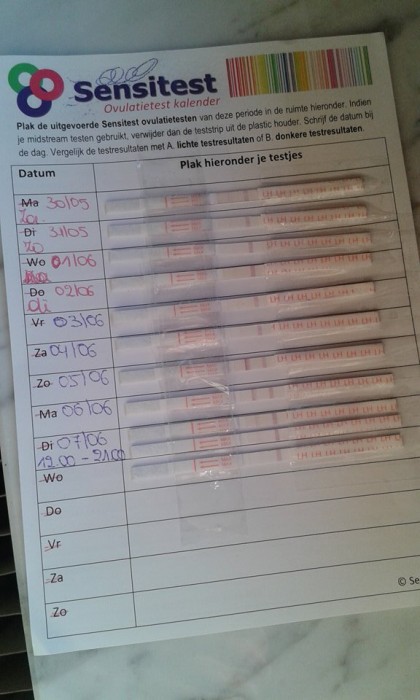 Sensitest
Ovulatietest kalender
Plak de uitgevoerde Sensitest ovulatietesten van deze periode in de ruimte hieronder. Indien
je midstream testen gebruikt, verwijder dan de teststrip uit de plastic houder. Schrijf de datum bij
de dag. Vergelijk de testresultaten met A. lichte testresultaten of B. donkere testresultaten.
Datum
Plak hieronder je testjes
Ma 30/05
Za
Di 31/05
Zo
Wo 01/06
Do 02/06
di
Vr 03/06
Za 04/06
Zo 05/06
Ma 06/06
Di 07/06
12.00 - 21.00
Wo
Do
Vr
Za
Zo
© Se